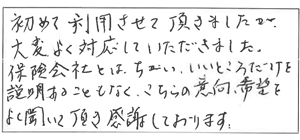 初めて利用させて頂きましたが、
大変よく対応していただきました。
保険会社とは、ちがい、いいところだけを
説明あることもなく、こちらの意向、希望を
よく聞いて頂き感謝しております。